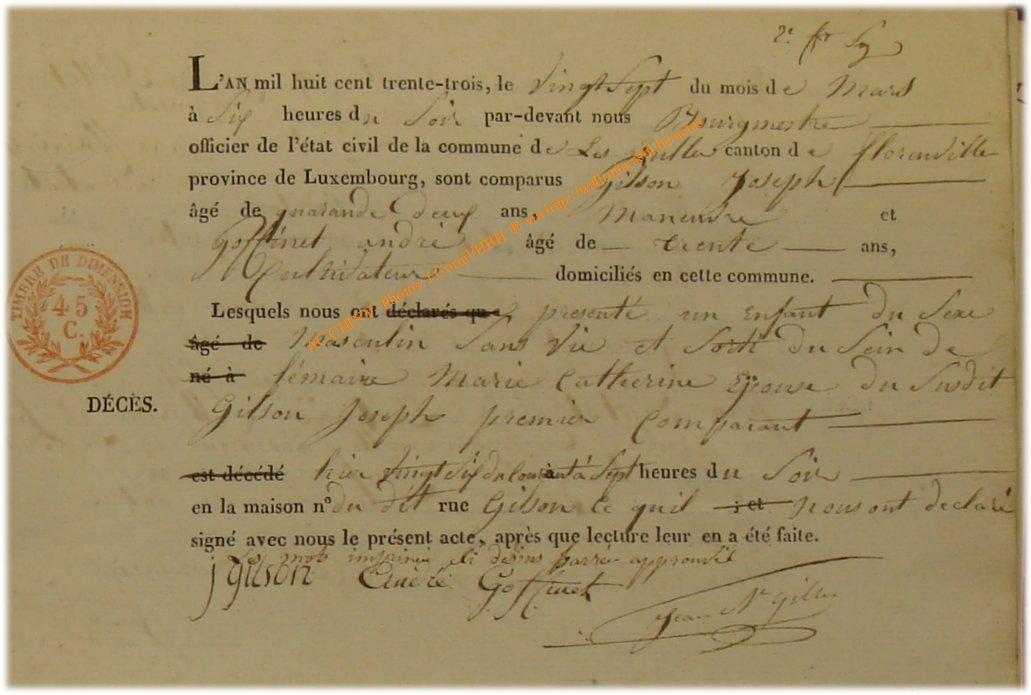 L'AN mil huit cent trente-trois, le vingt Sept du mois de Mars
à Six heures du Soir par-devant nous Bourgmestre
officier de l'état civil de la commune de Les Bulles canton de florenville
province de Luxembourg, sont comparus Gilson Joseph
âgé de quarande deux ans, Maneuvre et
Goffinet andré âgé de trente ans,
Cultivateur domiciliés en cette commune.
Lesquels nous ont déclarés que presenté un Enfant du Sexe
âgé de Masculin Sans Vie et Sorti du Sein de
né à lémaire Marie Catherine Epouse du Susdit
DÉCÈS.
Gilson Joseph premier Comparant
est décédé hier vingt Six du Courant à Sept heures du Soir
en la maison n° du dit rue Gilson ce quil ; et nous ont declaré
signé avec nous le présent acte, après que lecture leur en a été faite.
Les mots imprimé ci dessus barrés approuvé
j gilson André Goffinet
Jean Gilles
TIMBRE DE DIMENSION
45
C.